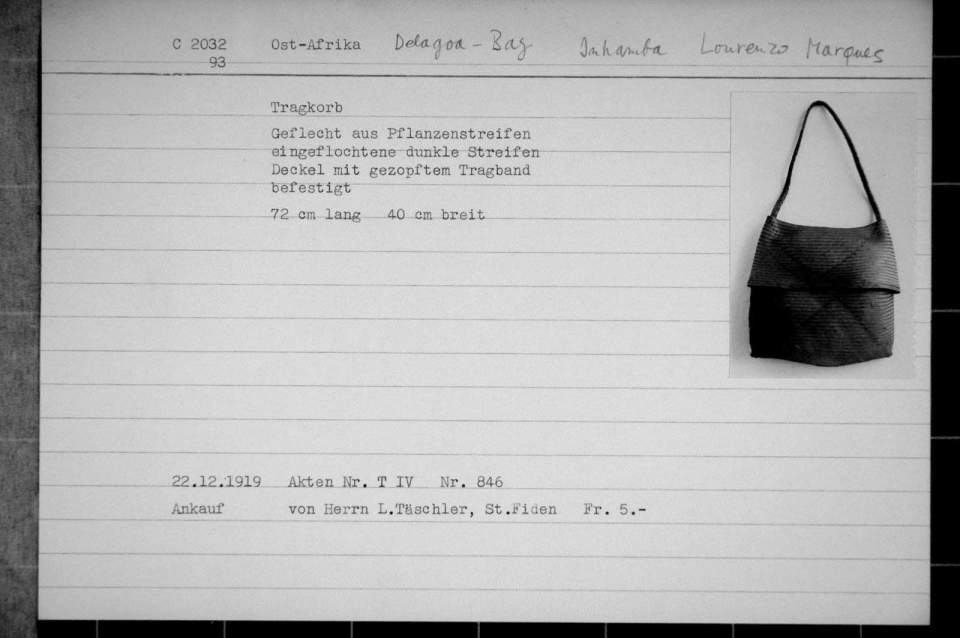 C 2032 Ost-Afrika Delagoa-Bay Inhamba Lourenzo Marques
93
Tragkorb
Geflecht aus Pflanzenstreifen
eingeflochtene dunkle Streifen
Deckel mit gezopftem Tragband
befestigt
72 cm lang 40 cm breit
22.12.1919 Akten Nr. T IV Nr. 846
Ankauf von Herrn L.Täschler, St.Fiden Fr. 5.-